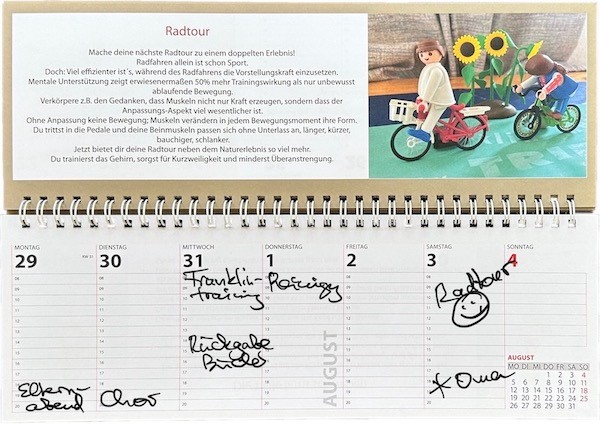 Radtour
Mache deine nächste Radtour zu einem doppelten Erlebnis!
Radfahren allein ist schon Sport.
Doch: Viel effizienter ist´s, während des Radfahrens die Vorstellungskraft einzusetzen.
Mentale Unterstützung zeigt erwiesenermaßen 50% mehr Trainingswirkung als nur unbewusst
ablaufende Bewegung.
Verkörpere z.B. den Gedanken, dass Muskeln nicht nur Kraft erzeugen, sondern dass der
Anpassungs-Aspekt viel wesentlicher ist.
Ohne Anpassung keine Bewegung; Muskeln verändern in jedem Bewegungsmoment ihre Form.
Du trittst in die Pedale und deine Beinmuskeln passen sich ohne Unterlass an, länger, kürzer,
bauchiger, schlanker.
Jetzt bietet dir deine Radtour neben dem Naturerlebnis so viel mehr.
Du trainierst das Gehirn, sorgst für Kurzweiligkeit und minderst Überanstrengung.
MONTAG DIENSTAG MITTWOCH DONNERSTAG FREITAG SAMSTAG SONNTAG
29 KW 31 30 31 1 2 3 4
Franklin-
training
Rückgabe
Bücher
Eltern-
abend
Chor
Radtour
* Oma
AUGUST
AUGUST
MO DI MI DO FR SA SO
1 2 3 4
5 6 7 8 9 10 11
12 13 14 15 16 17 18
19 20 21 22 23 24 25
26 27 28 29 30 31